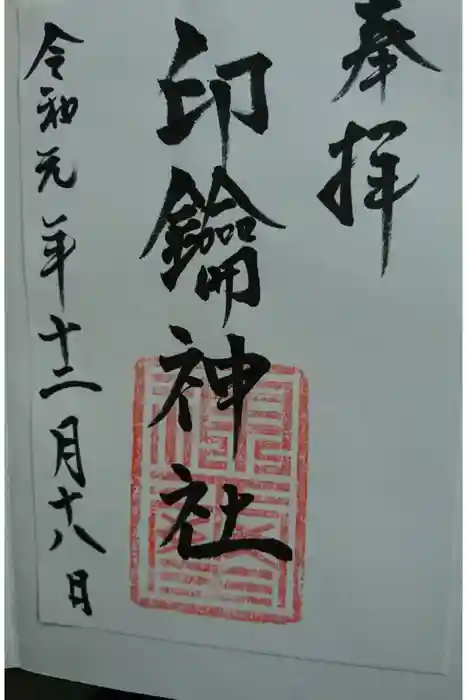 奉拝
印鑰神社
令和元年十二月十八日